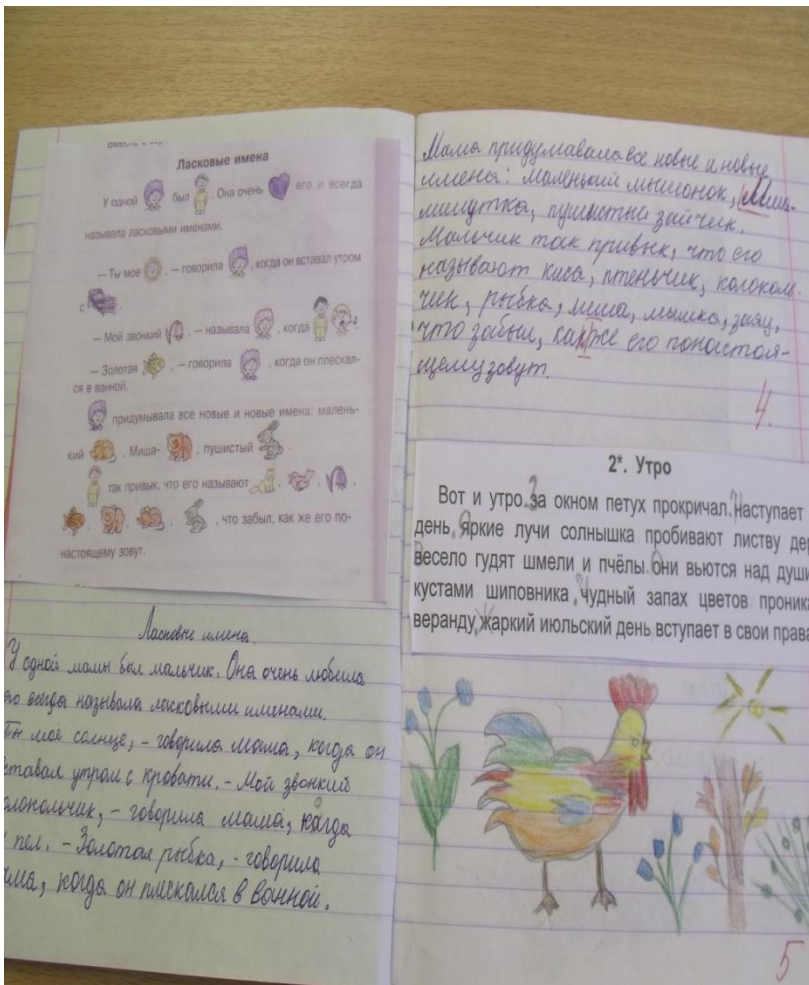 Ласковые имена
У одной был . Она очень его и всегда
называла ласковыми именами.
– Ты мое , – говорила , когда он вставал утром
с .
– Мой звонкий , – называла , когда
– Золотая , – говорила , когда он плескал-
ся в ванной.
придумывала все новые и новые имена: малень-
кий , Миша- , пушистый .
так привык, что его называют , , ,
, , , , что забыл, как же его по-
настоящему зовут.
Ласковые имена.
У одной мамы был мальчик. Она очень любила
его всегда называла ласковыми именами.
Ты моё солнце, – говорила мама, когда он
ставал утром с кровати. – Мой звонкий
олокольчик, – говорила мама, когда
пел. – Золотая рыбка, – говорила
ма, когда он плескался в ванной.
Мама придумавала все новые и новые
имена: маленький мышонок, Миша-
мишутка, пушистый зайчик.
Мальчик так привык, что его
называют киса, птеньчик, колоколь-
чик, рыбка, миша, мышка, заяц,
что забыл, как же его понастоя-
щему зовут.
4.
2*. Утро
Вот и утро за окном петух прокричал. Наступает
день, яркие лучи солнышка пробивают листву дер
Весело гудят шмели и пчёлы. Они вьются над души
кустами шиповника, чудный запах цветов проника
веранду, жаркий июльский день вступает в свои права
5